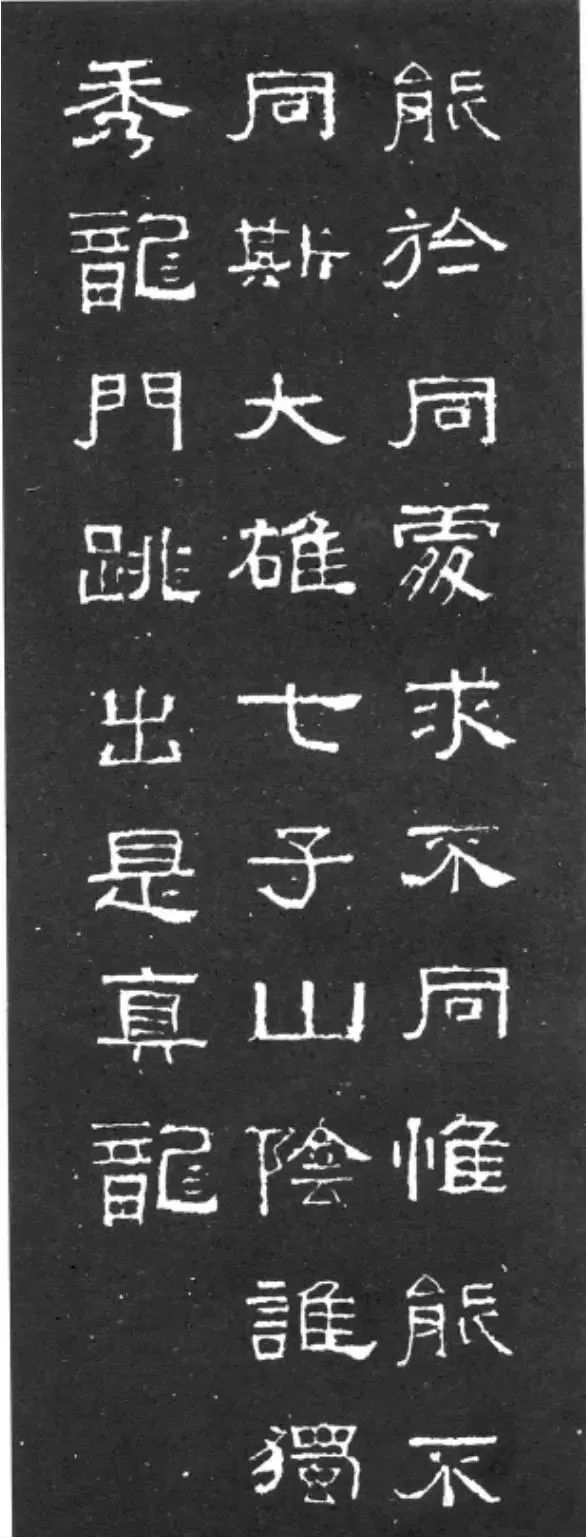 能於同處求不同惟能不
同斯大雄七子山陰誰獨
秀龍門跳出是真龍